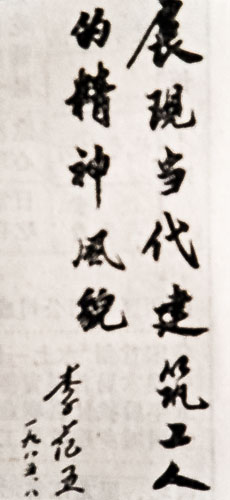 展現当代建筑工人
的精神风貌
李范五
一九八五.八